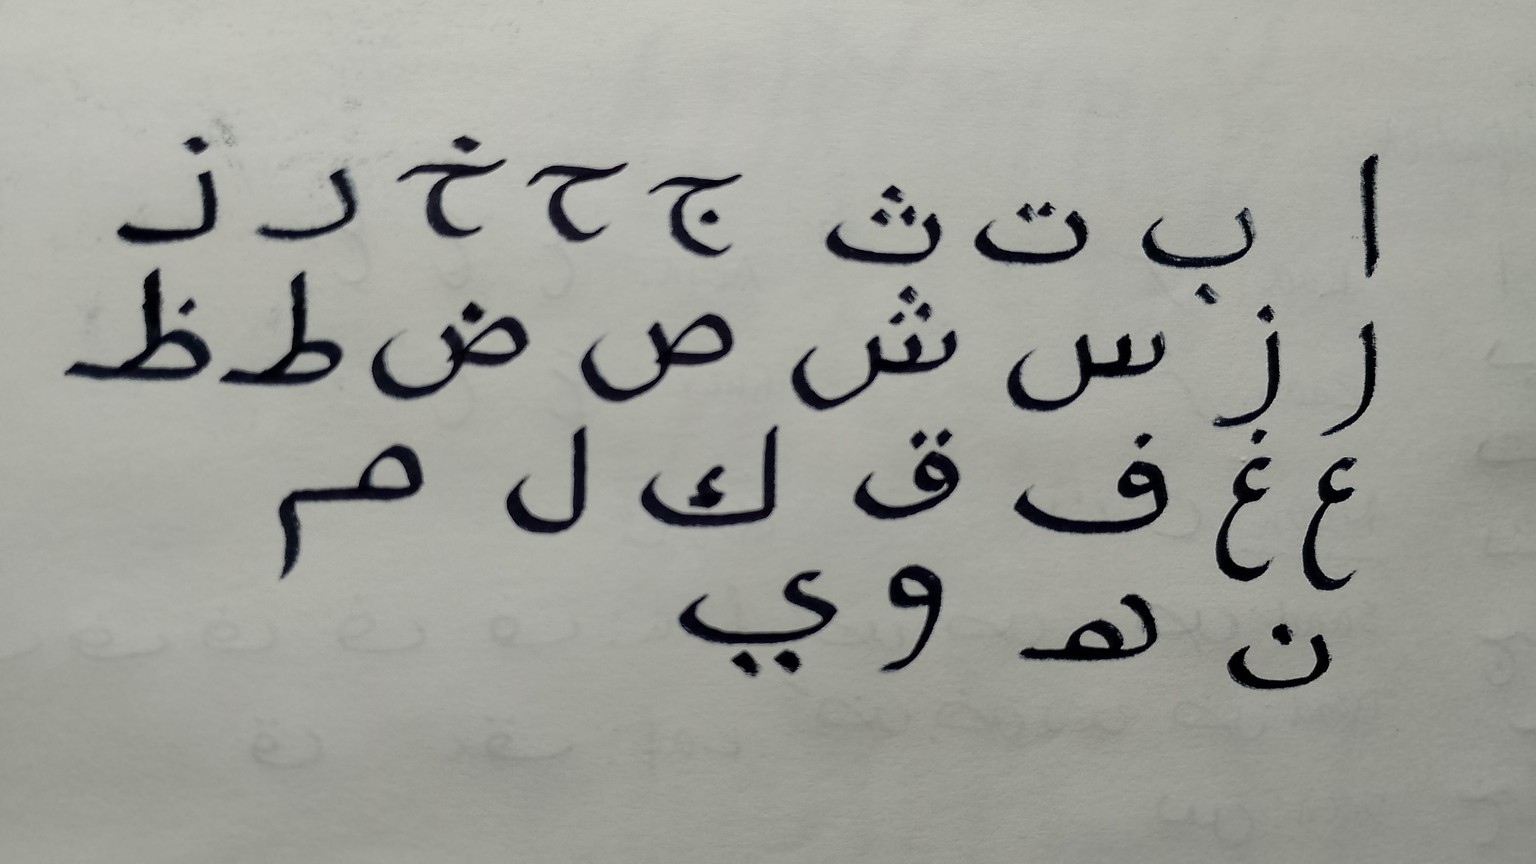 ا ب ت ث ج ح خ د ذ
ر ز س ش ص ض ط ظ
ع غ ف ق ك ل م
ن ه و ي